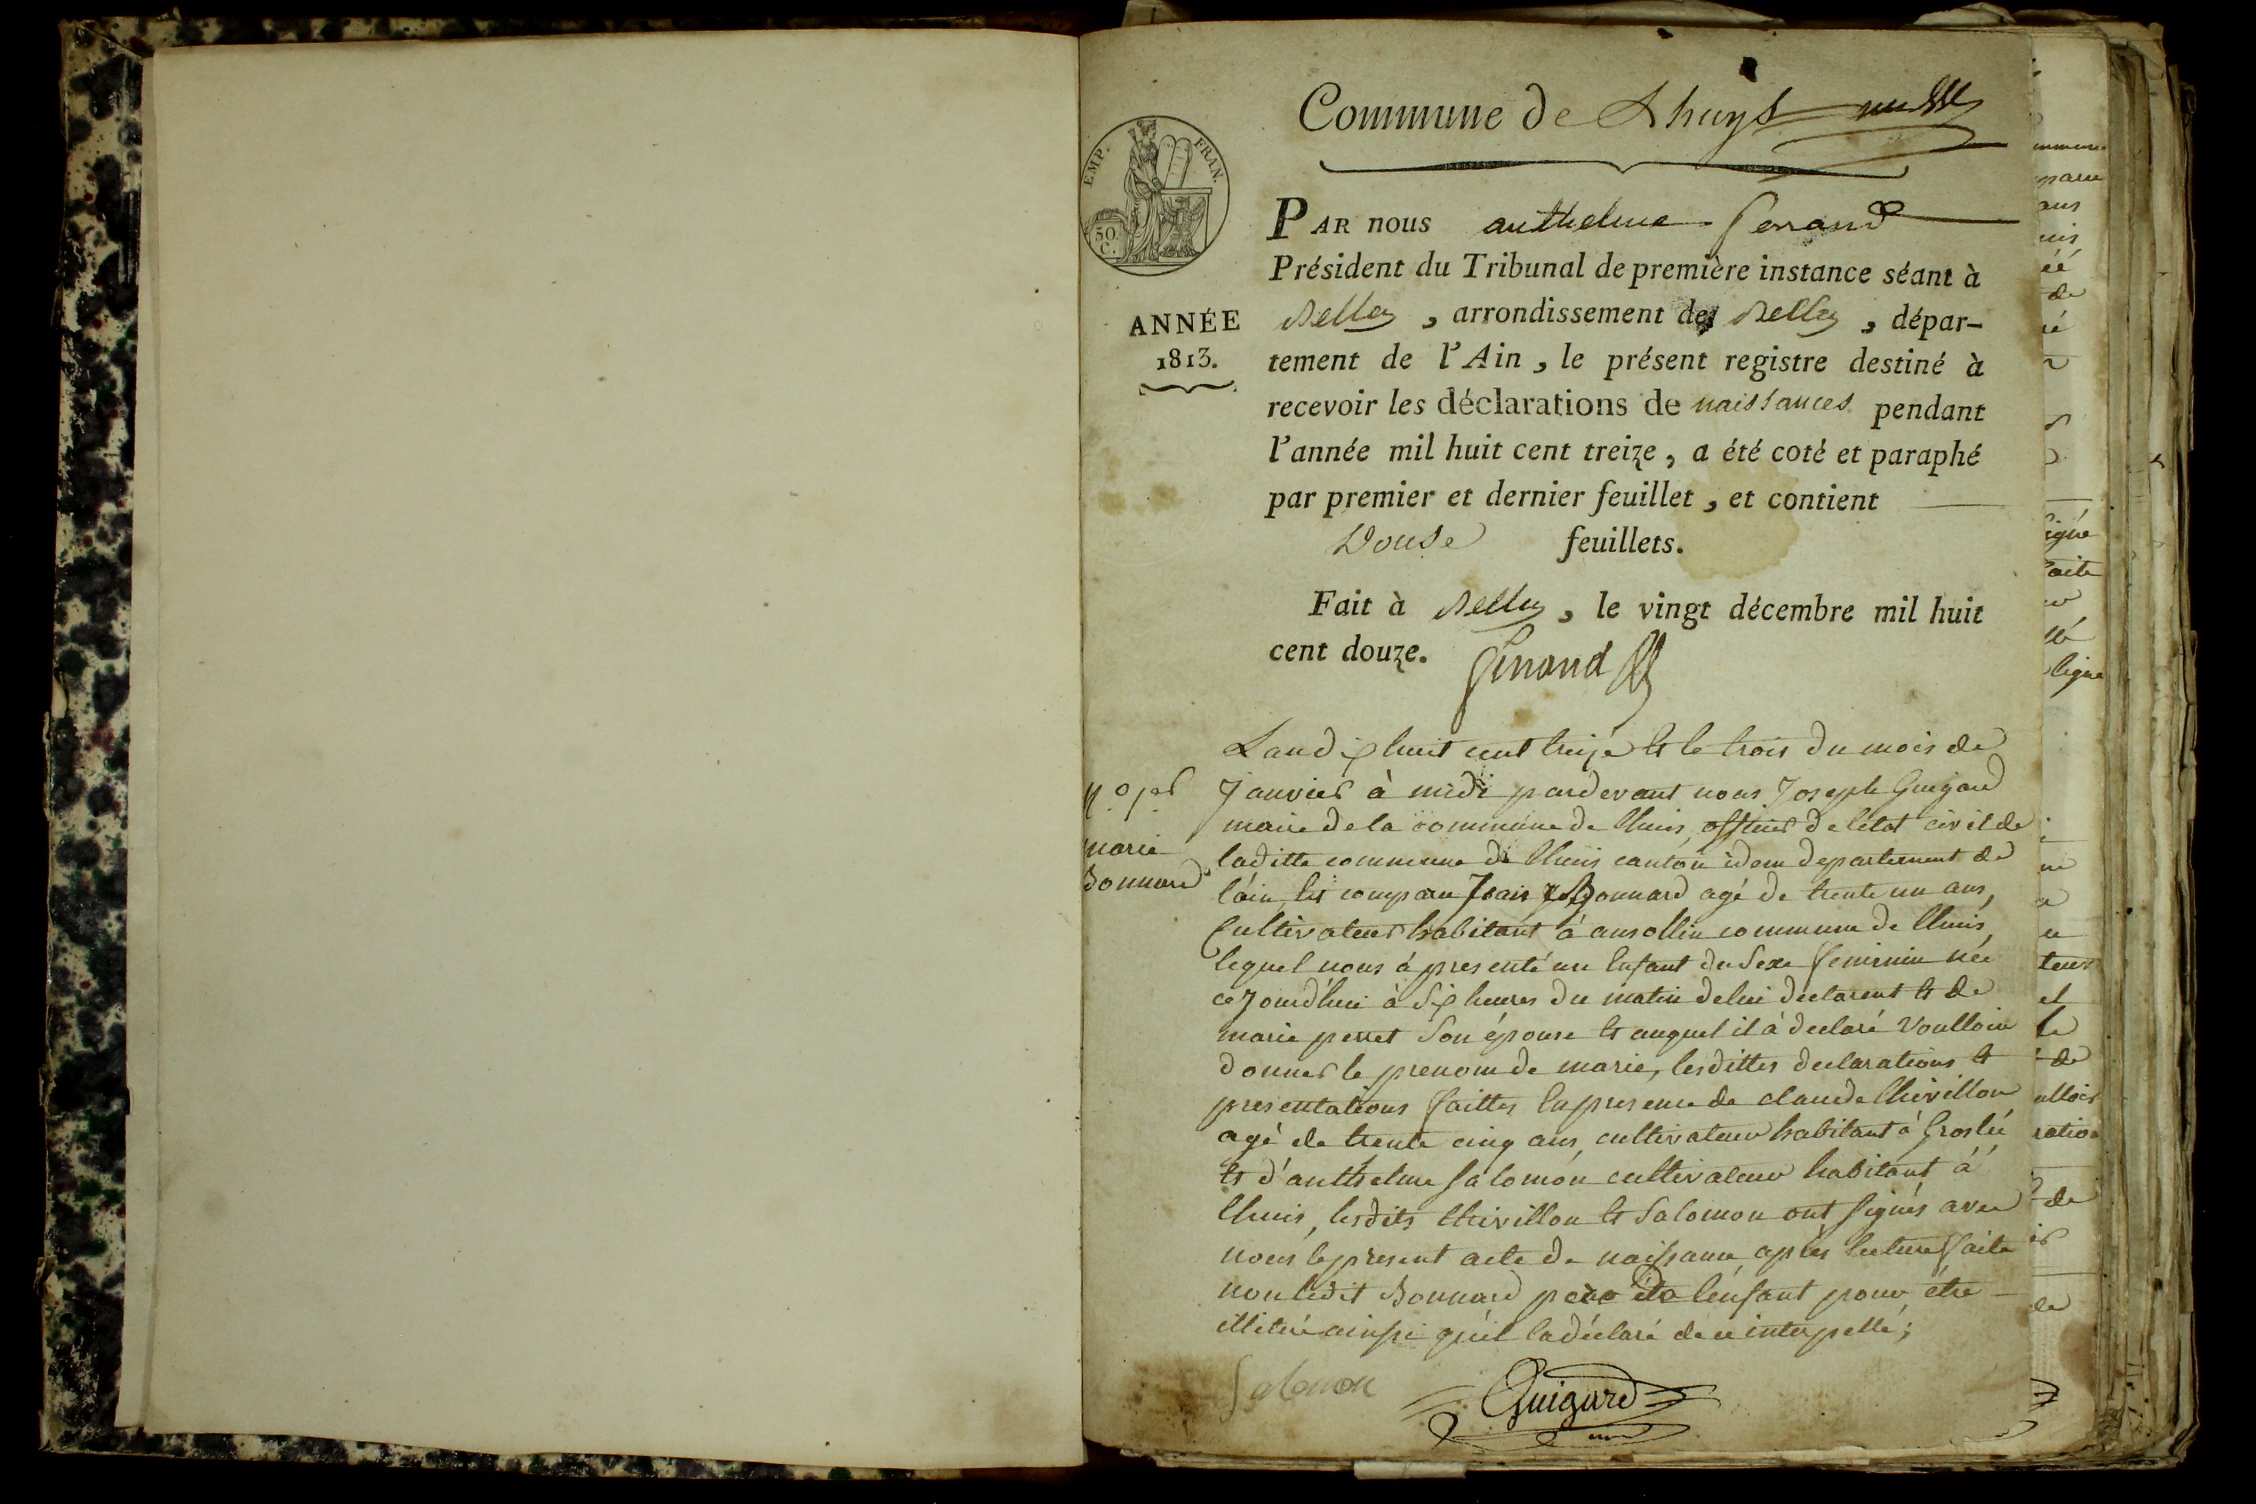 Commune de Lhuys
EMP. FRAN.
50.
C.
PAR nous anthelme Ferrand
Président du Tribunal de première instance séant à
ANNÉE
1813.
Belley, arrondissement de Belley, dépar-
tement de l'Ain, le présent registre destiné à
recevoir les déclarations de naissances pendant
l'année mil huit cent treize, a été coté et paraphé
par premier et dernier feuillet, et contient
Douse feuillets.
Fait à Belley, le vingt décembre mil huit
cent douze.
N.o 1er
marie
Bonnard
Lan dix huit cent treize et le trois du mois de
Janvier à midi pardevant nous Joseph Guigard
maire de la commune de lhuis, officier de letat civil de
laditte commune de lhuis canton idem departement de
lain, est comparu Bonnard agé de trente un ans,
Cultivateur habitant à ansollin commune de lhuis,
lequel nous à presenté un Enfant du Sexe feminin née
cejourd'hui à Six heures du matin de lui declarent et de
marie perret Son épouse et auquel il à declaré voulloir
donner le prenom de marie, lesdittes declarations et
presentations faittes En presence de claude thivillon
agé de trente cinq ans, cultivateur habitant à Groslée
et d'anthelme Salomon cultivateur habitant à
lhuis, lesdits thivillon et Salomon ont signés avec
nous le present acte de naissance, après lecture faite
non ledit Bonnard père de lenfant pour être
illitéré ainssi qu'il la déclaré de ce interpellé;
Salomon
Guigard